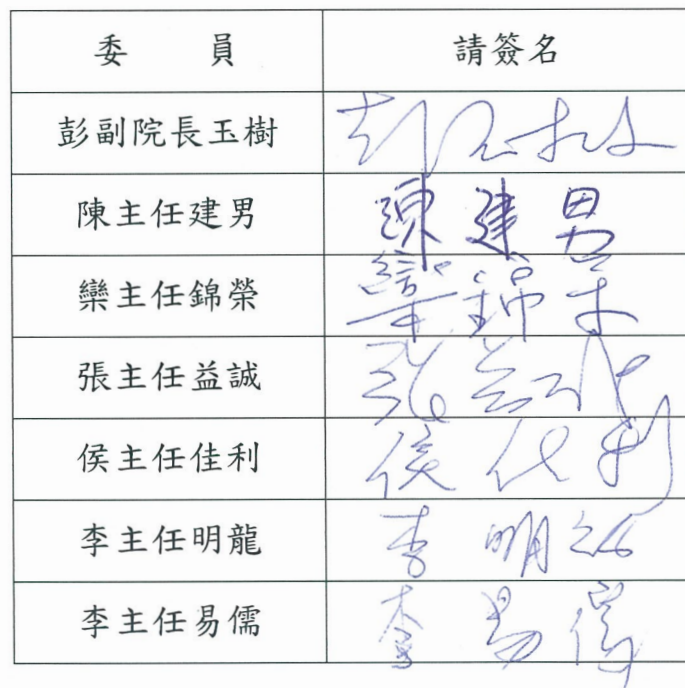 委 員 請簽名
彭副院長玉樹 彭玉樹
陳主任建男 陳建男
欒主任錦榮 欒錦榮
張主任益誠 張益誠
侯主任佳利 侯佳利
李主任明龍 李明龍
李主任易儒 李易儒